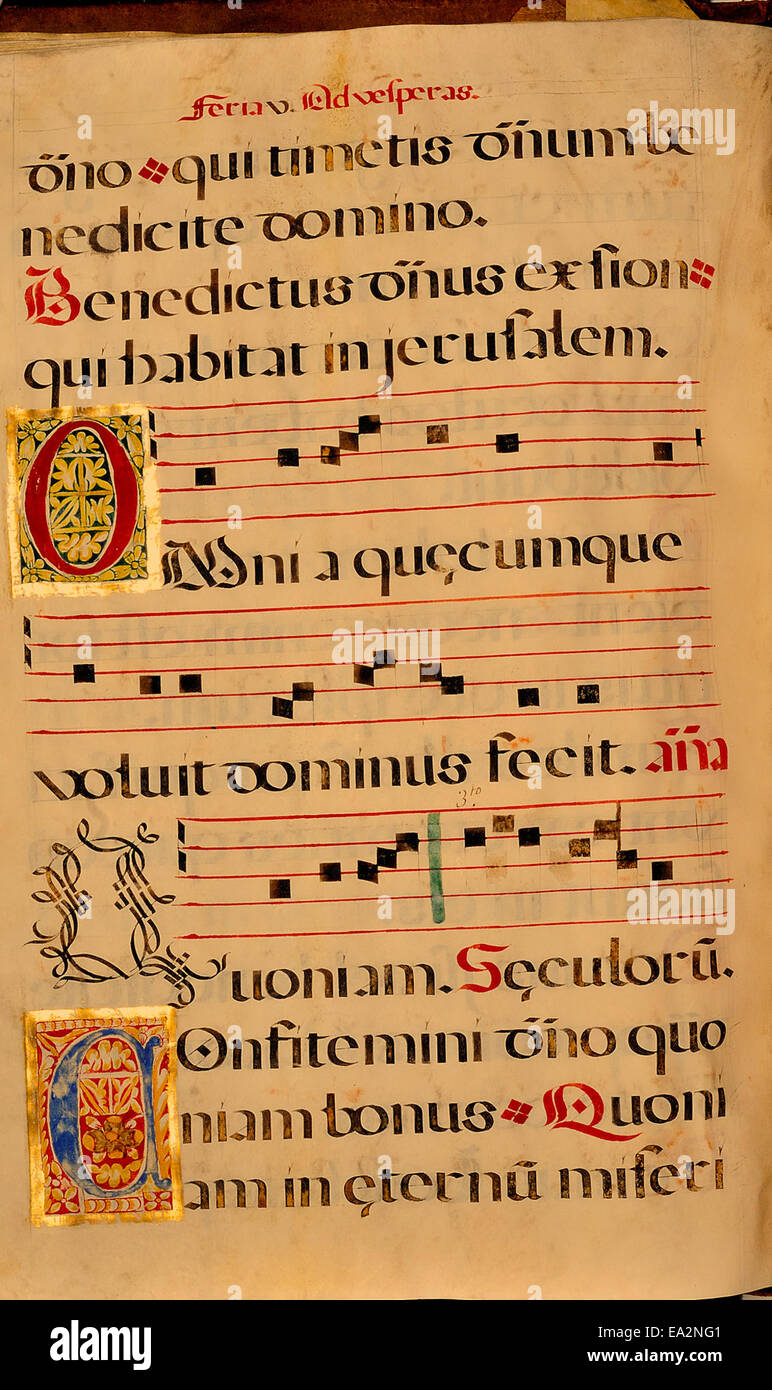 Feria v. Ad vesperas.
dño qui timetis dñum be
nedicite domino.
Benedictus dñus ex sion
qui habitat in jerusalem.
OMnia quęcumque
voluit dominus fecit. aña
3.to
Quoniam. Sęculorū.
Confitemini dño quo
niam bonus Quoni
am in ęternū miseri
alamy stock photo
EA2NG1
www.alamy.com